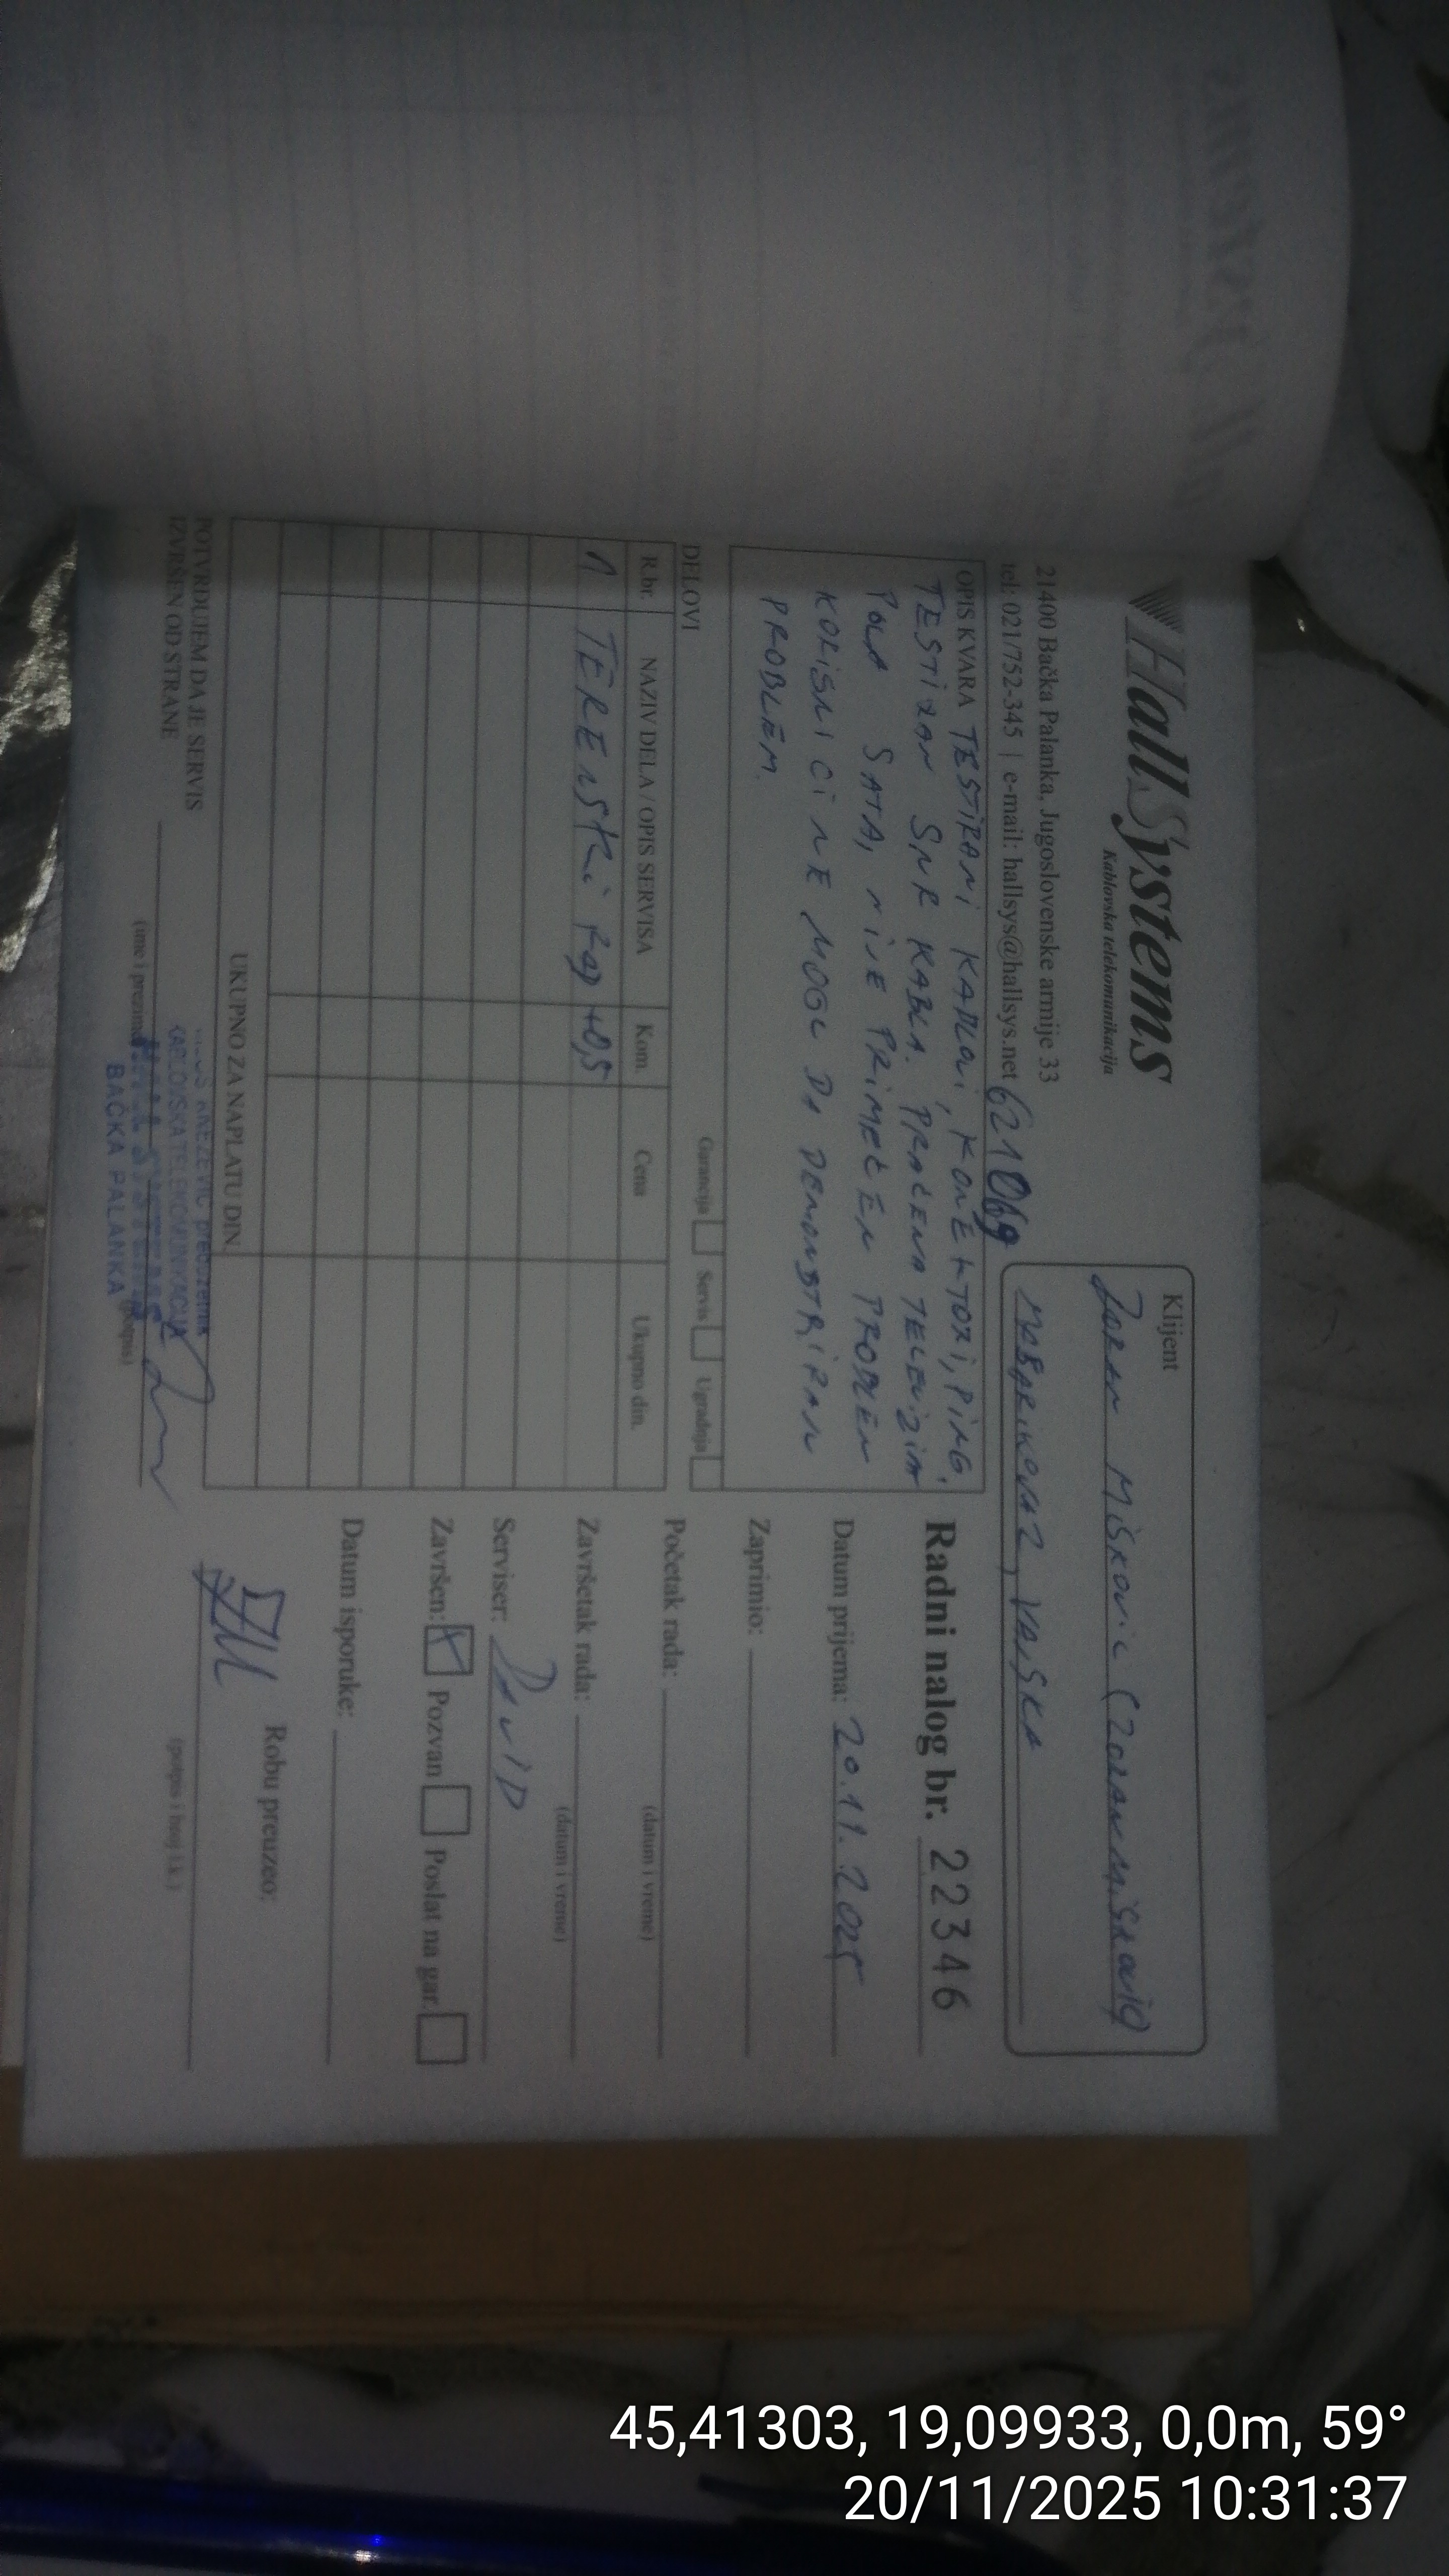 HallSystems
Kablovska telekomunikacija
21400 Bačka Palanka, Jugoslovenske armije 33
tel: 021/752-345 | e-mail: hallsys@hallsys.net
621069
Klijent
Zoran Mišković (zoranmiskovic)
2, VAJSKA
OPIS KVARA TESTIRANI KABLOVI, KONEKTORI, PING.
TESTIRAN SNR KABLA. PRAĆENA TELEVIZIJA
POLA SATA, NIJE PRIMEĆEN PROBLEM
KORISNICI NE MOGU DA DEMONSTRIRAJU
PROBLEM.
Garancija Servis Ugradnja
DELOVI
R.br. NAZIV DELA / OPIS SERVISA Kom. Cena Ukupno din.
1 TERENSKI RAD 40,5
UKUPNO ZA NAPLATU DIN.
POTVRĐUJEM DA JE SERVIS
IZVRŠEN OD STRANE
(ime i prezime) (potpis)
KNEŽEVIĆ preduzetnik
KABLOVSKA TELEKOMUNIKACIJA
BAČKA PALANKA
Radni nalog br. 22346
Datum prijema: 20.11.2025
Zaprimio:
Početak rada:
(datum i vreme)
Završetak rada:
(datum i vreme)
Serviser: DAVID
Završen: Pozvan Poslat na gar.
Datum isporuke:
Robu preuzeo:
(potpis i broj l.k.)
45,41303, 19,09933, 0,0m, 59°
20/11/2025 10:31:37